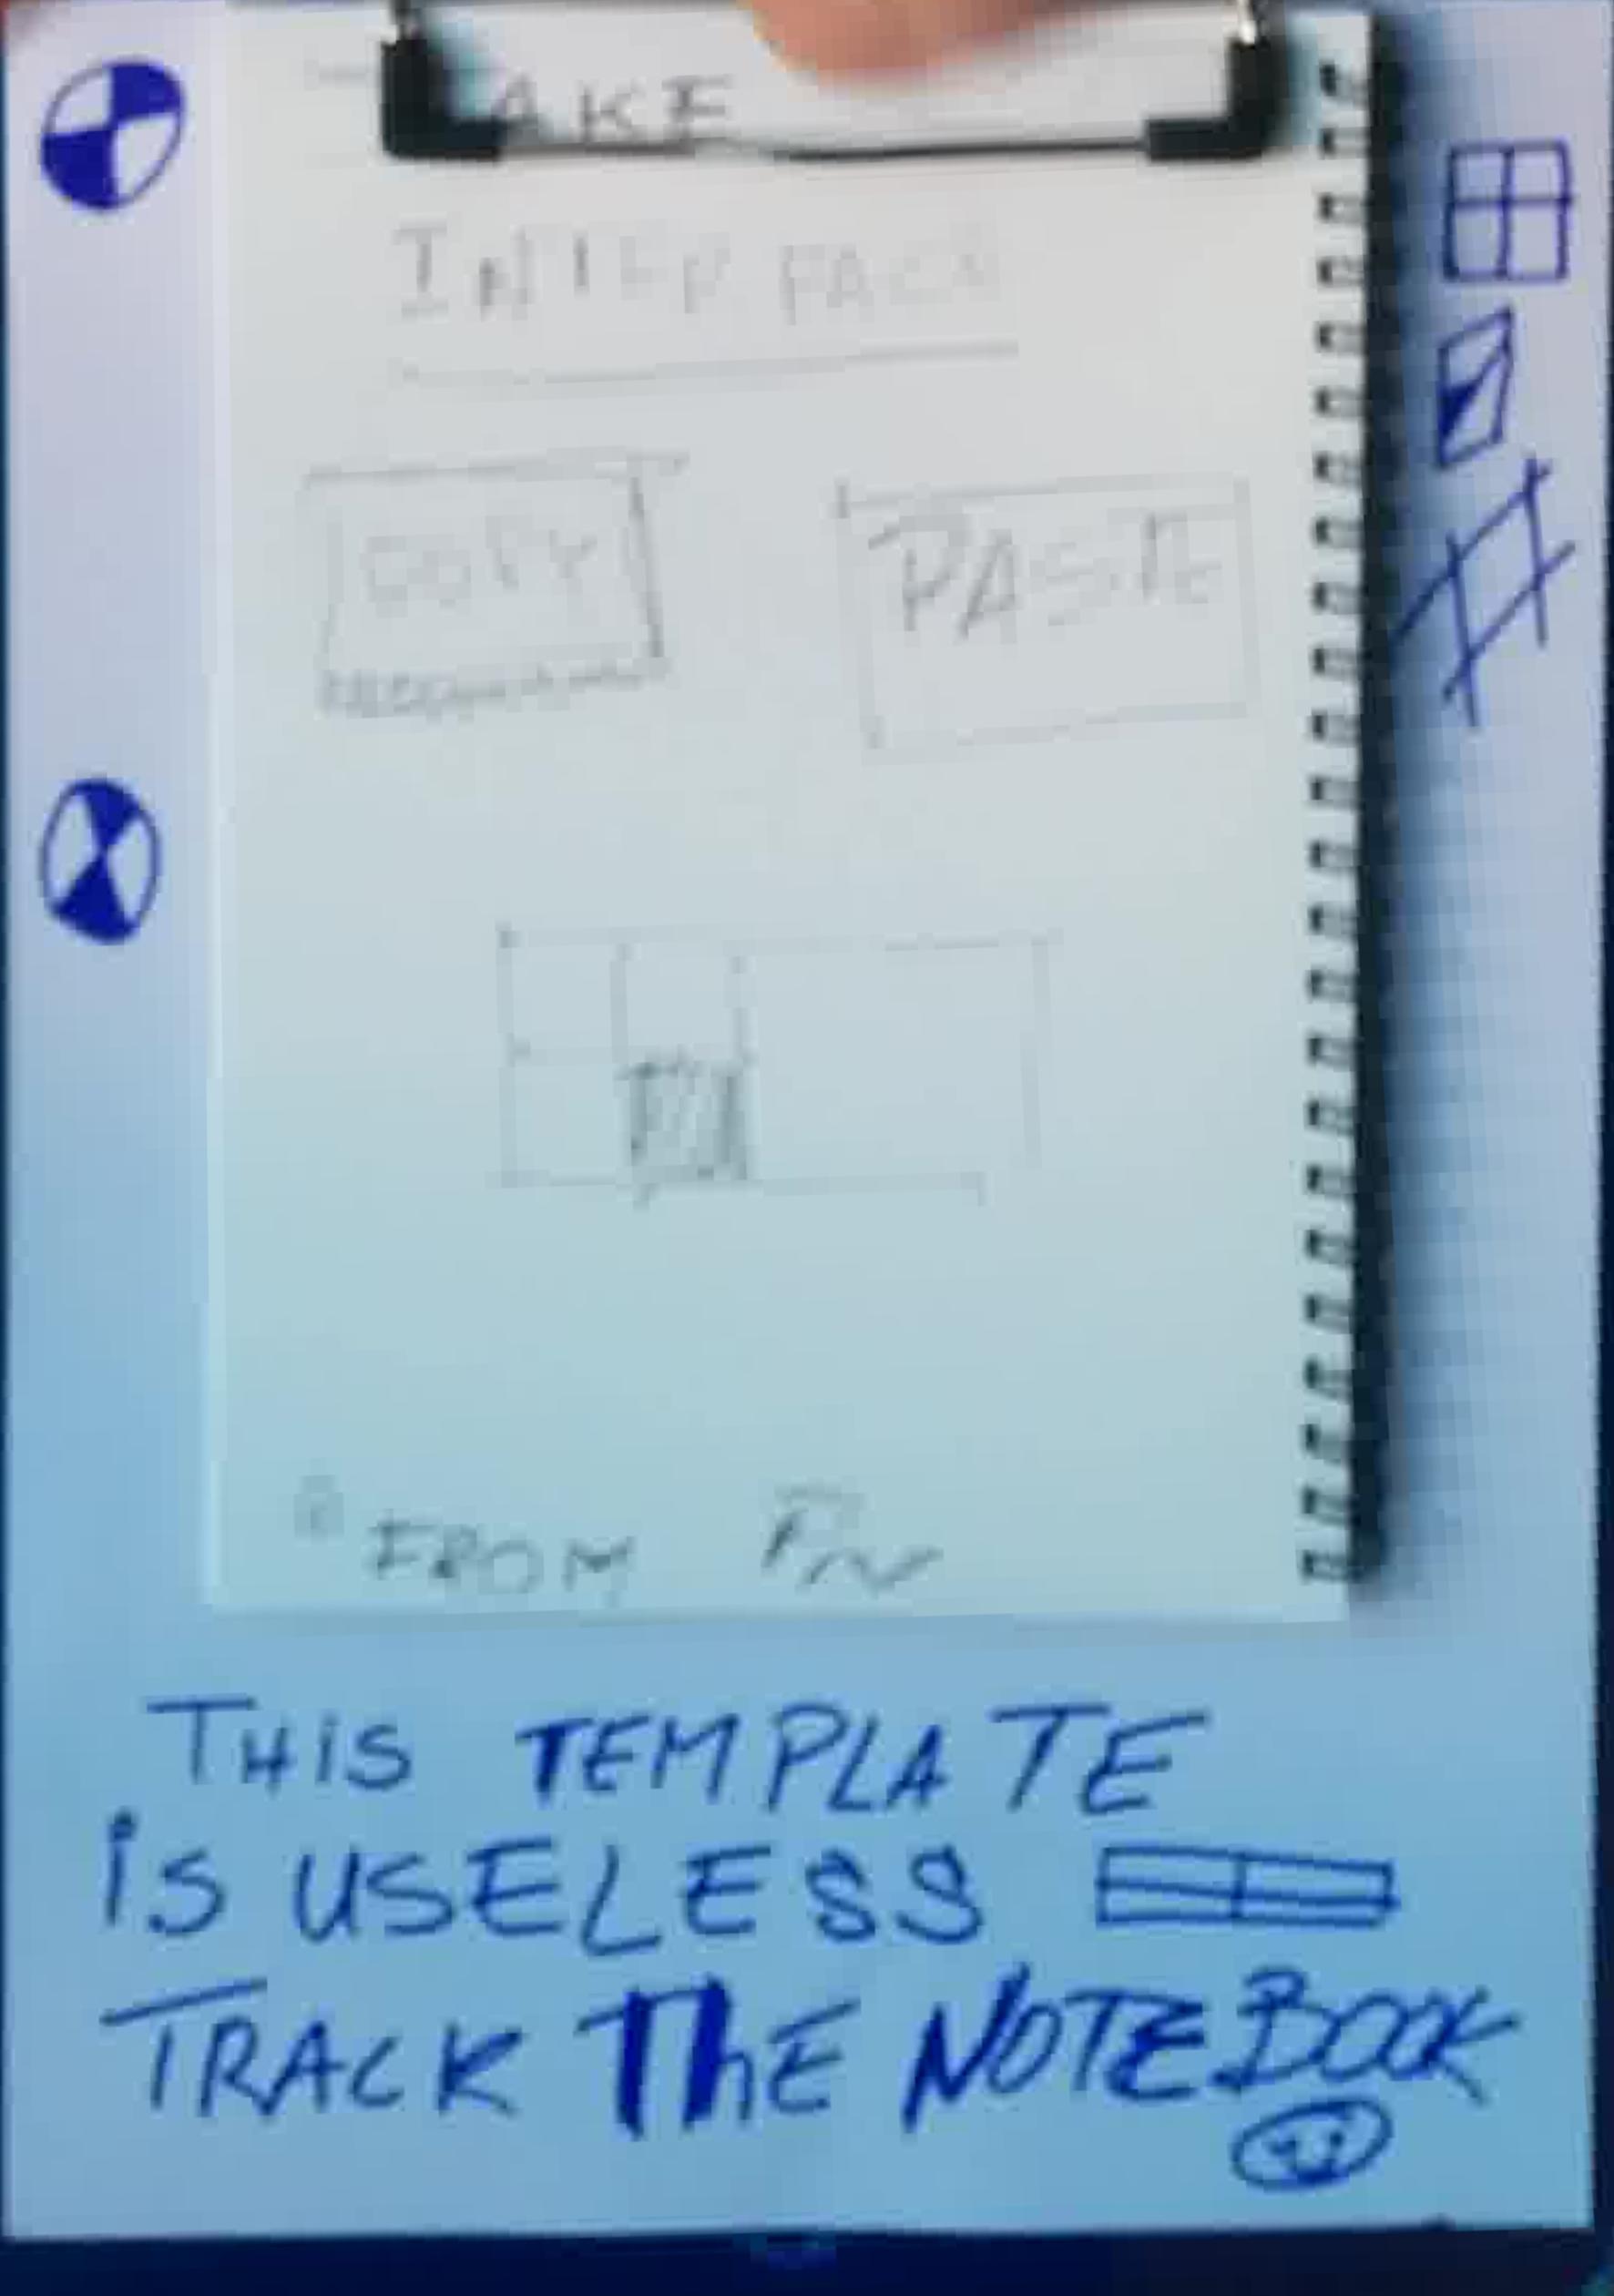 AKE
INTERFACE
COPY
PASTE
FROM
THIS TEMPLATE
is USELESS
TRACK ThE NOTEBOOK